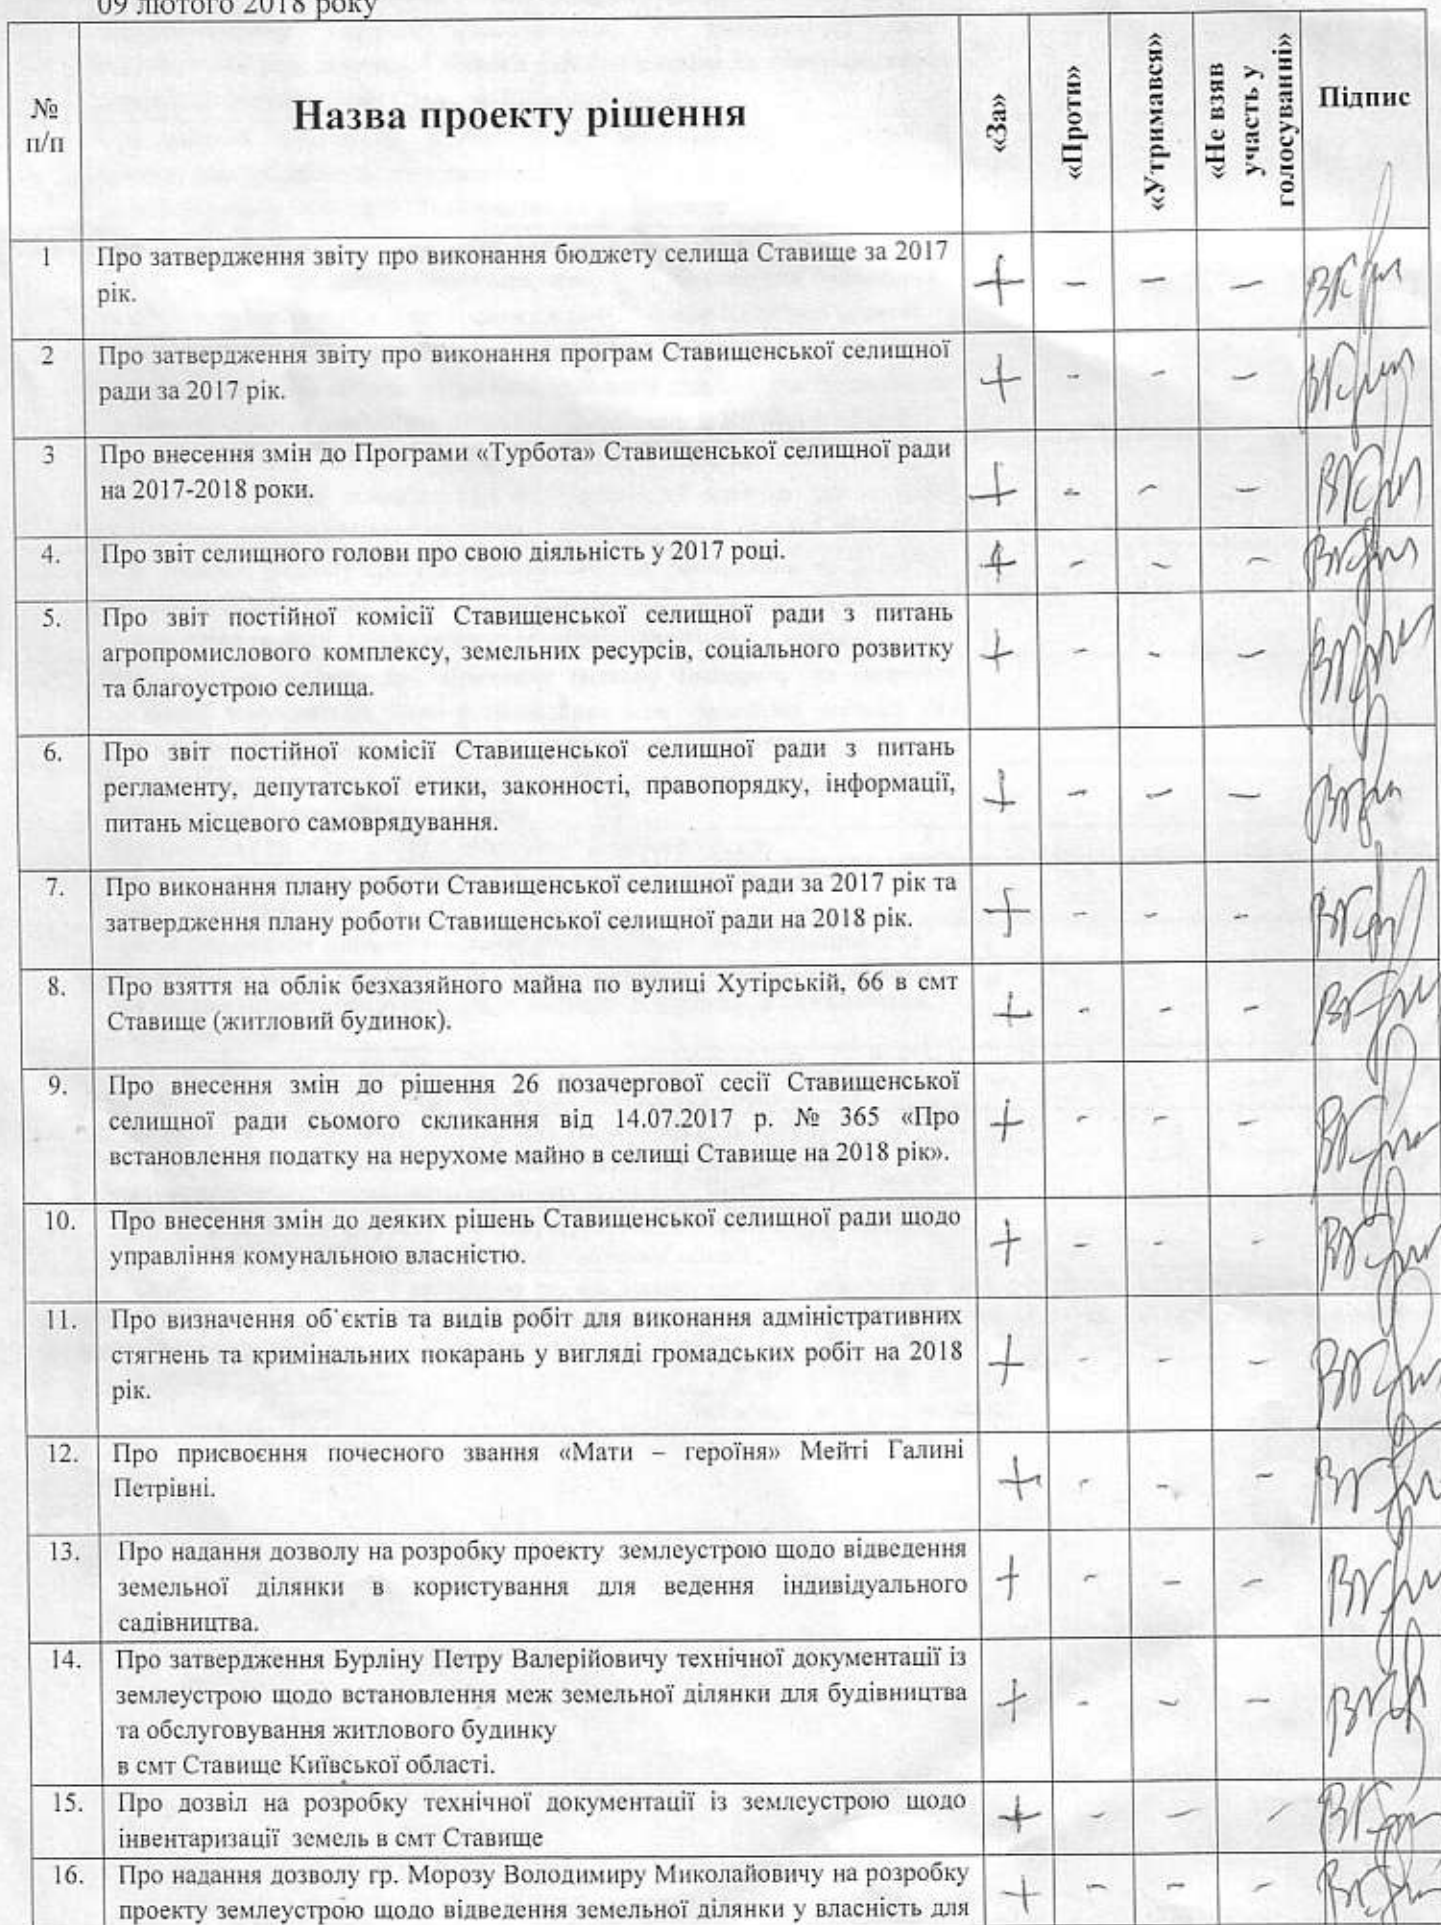 09 лютого 2018 року
№
п/п
Назва проекту рішення
«За»
«Проти»
«Утримався»
«Не взяв
участь у
голосуванні»
Підпис
1 Про затвердження звіту про виконання бюджету селища Ставище за 2017 + - - -
рік.
2 Про затвердження звіту про виконання програм Ставищенської селищної + - - -
ради за 2017 рік.
3 Про внесення змін до Програми «Турбота» Ставищенської селищної ради + - - -
на 2017-2018 роки.
4. Про звіт селищного голови про свою діяльність у 2017 році. + - - -
5. Про звіт постійної комісії Ставищенської селищної ради з питань
агропромислового комплексу, земельних ресурсів, соціального розвитку + - - -
та благоустрою селища.
6. Про звіт постійної комісії Ставищенської селищної ради з питань
регламенту, депутатської етики, законності, правопорядку, інформації, + - - -
питань місцевого самоврядування.
7. Про виконання плану роботи Ставищенської селищної ради за 2017 рік та + - - -
затвердження плану роботи Ставищенської селищної ради на 2018 рік.
8. Про взяття на облік безхазяйного майна по вулиці Хутірській, 66 в смт + - - -
Ставище (житловий будинок).
9. Про внесення змін до рішення 26 позачергової сесії Ставищенської
селищної ради сьомого скликання від 14.07.2017 р. № 365 «Про + - - -
встановлення податку на нерухоме майно в селищі Ставище на 2018 рік».
10. Про внесення змін до деяких рішень Ставищенської селищної ради щодо + - - -
управління комунальною власністю.
11. Про визначення об`єктів та видів робіт для виконання адміністративних
стягнень та кримінальних покарань у вигляді громадських робіт на 2018 + - - -
рік.
12. Про присвоєння почесного звання «Мати – героїня» Мейті Галині + - - -
Петрівні.
13. Про надання дозволу на розробку проекту землеустрою щодо відведення
земельної ділянки в користування для ведення індивідуального + - - -
садівництва.
14. Про затвердження Бурліну Петру Валерійовичу технічної документації із
землеустрою щодо встановлення меж земельної ділянки для будівництва + - - -
та обслуговування житлового будинку
в смт Ставище Київської області.
15. Про дозвіл на розробку технічної документації із землеустрою щодо + - - -
інвентаризації земель в смт Ставище
16. Про надання дозволу гр. Морозу Володимиру Миколайовичу на розробку + - - -
проекту землеустрою щодо відведення земельної ділянки у власність для